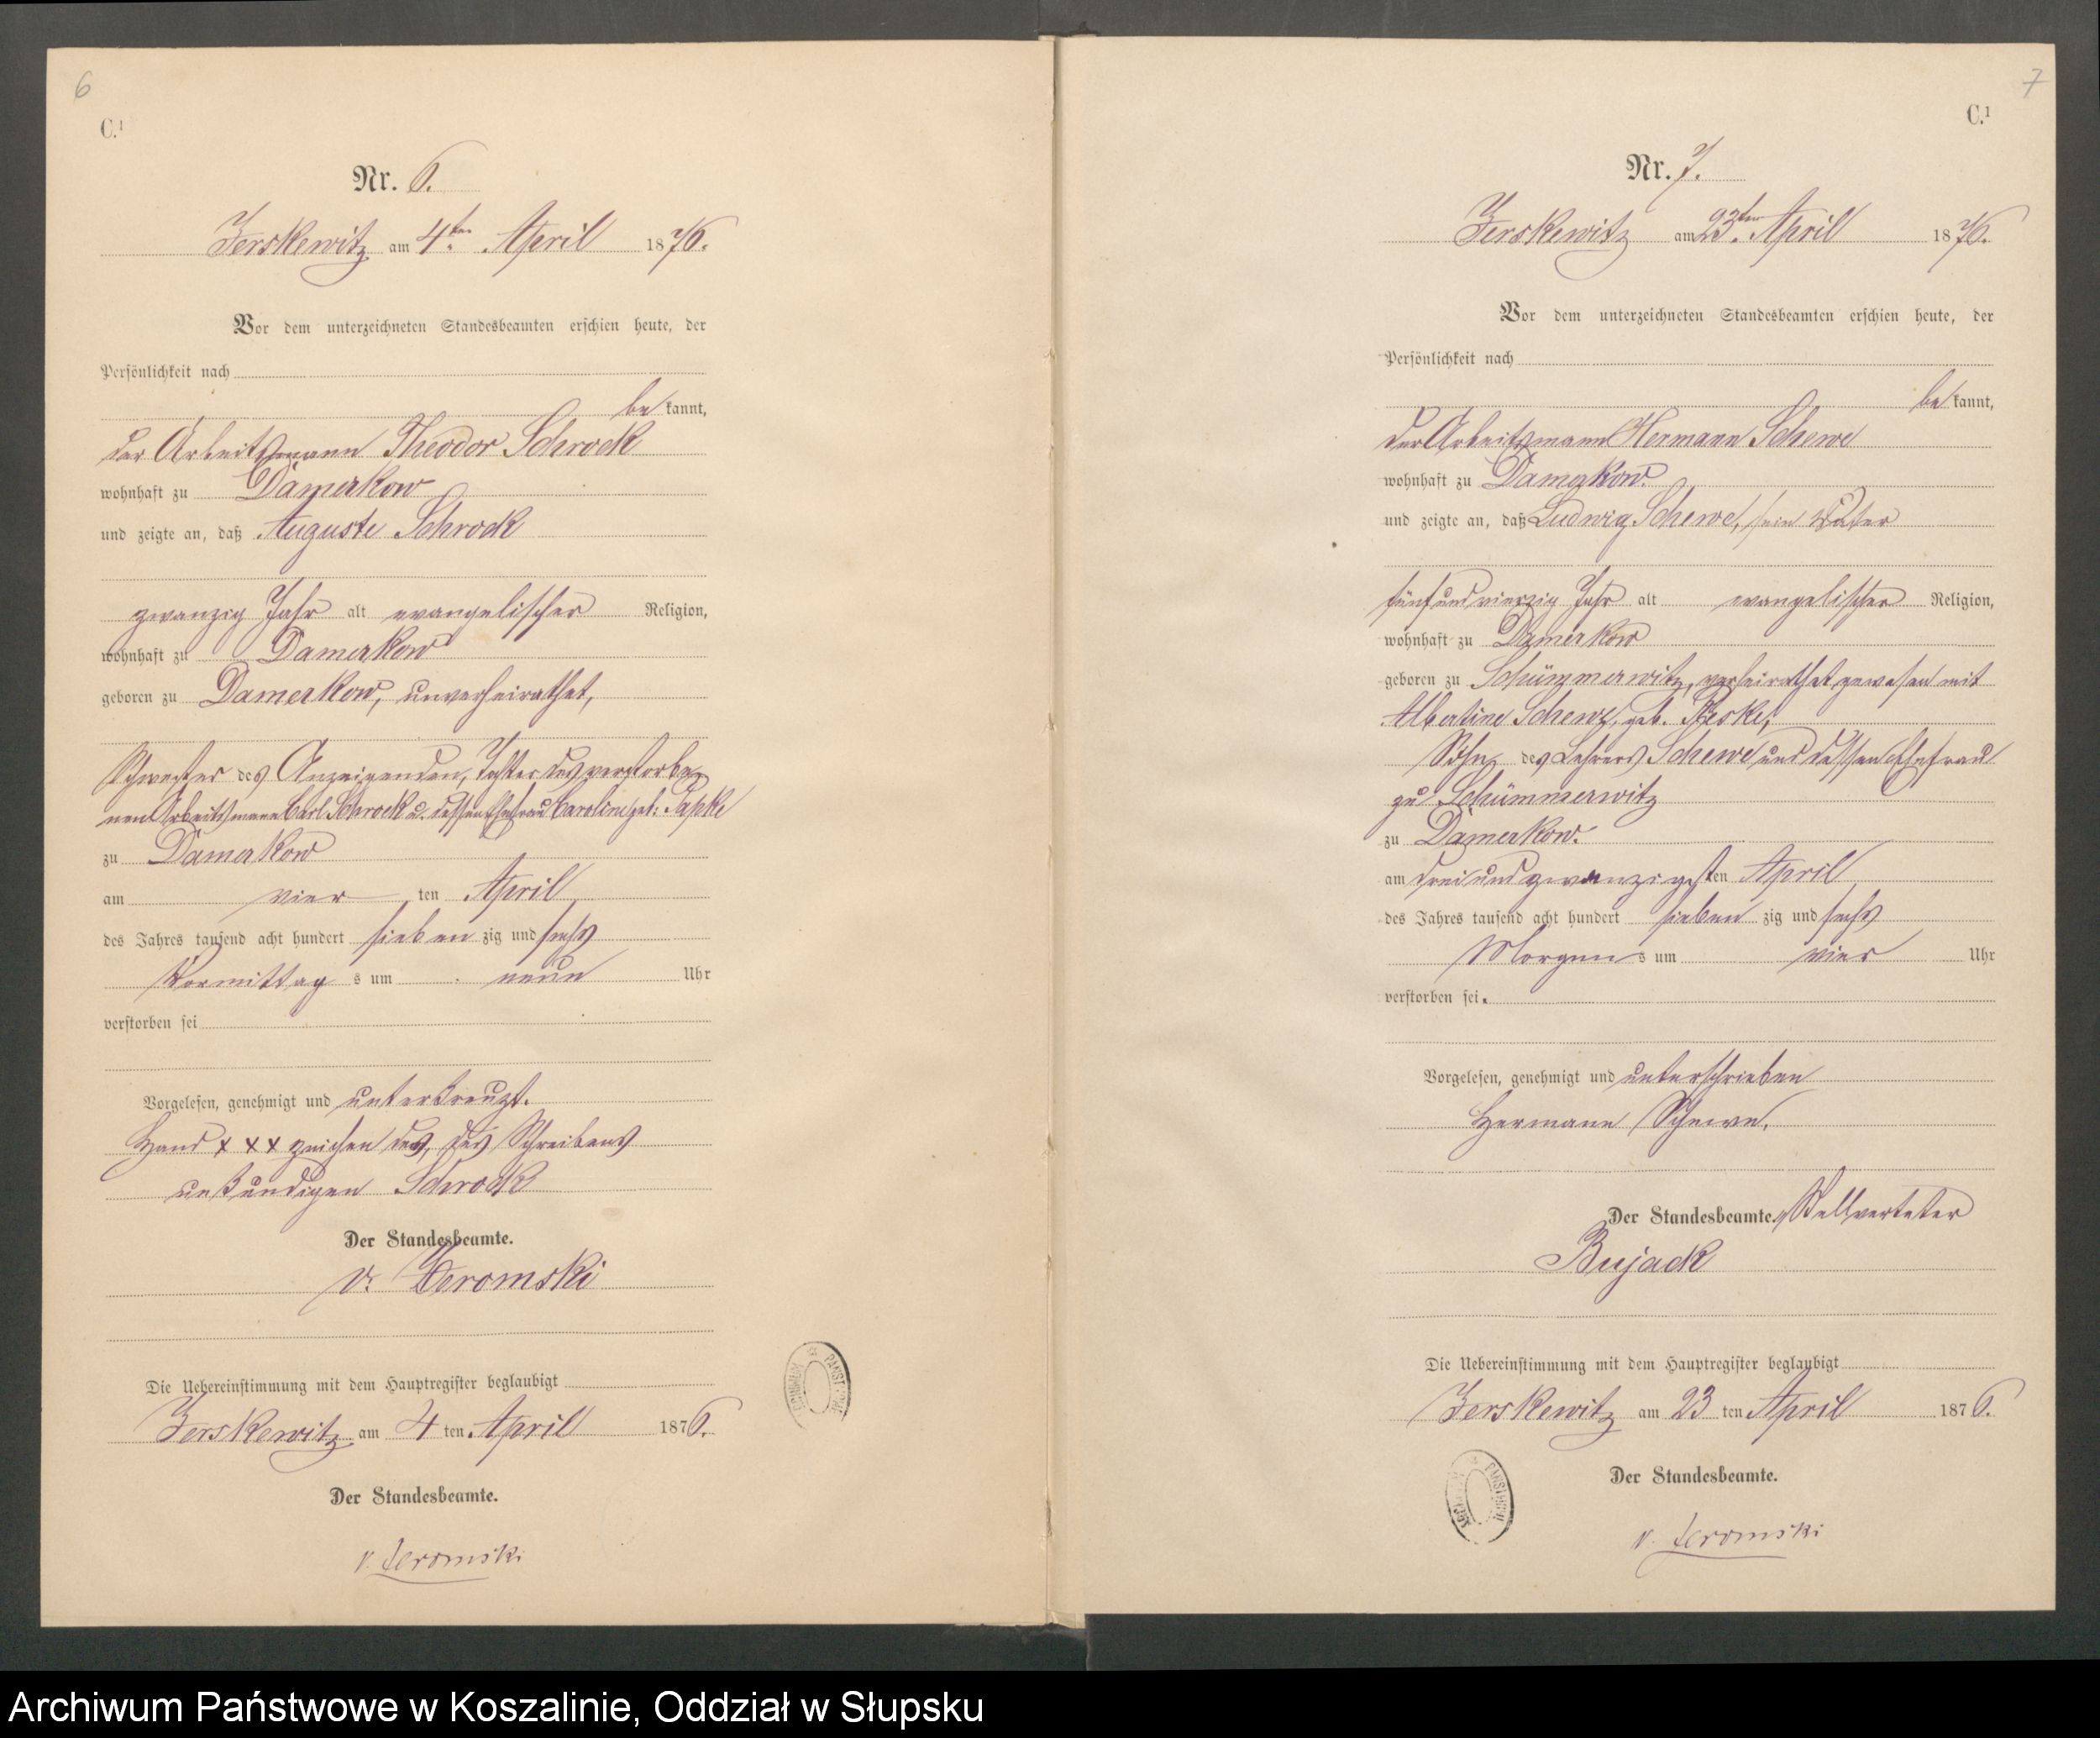 6
C.¹
Nr. 6.
Zerskewitz am 4ten April 1876.
Vor dem unterzeichneten Standesbeamten erschien heute, der
Persönlichkeit nach
be kannt,
der Arbeitsmann Theodor Schrock
wohnhaft zu Damerkow
und zeigte an, daß Auguste Schrock
zwanzig Jahr alt evangelischer Religion,
wohnhaft zu Damerkow
geboren zu Damerkow, unverheirathet,
Schwester des Anzeigenden, Tochter des verstorbe-
nen Arbeitsmann Carl Schrock u. dessen Ehefrau Caroline geb: Papke
zu Damerkow
am vier ten April
des Jahres tausend acht hundert sieben zig und sechs
Vormittag s um neun Uhr
verstorben sei
Vorgelesen, genehmigt und unterkreuzt.
Hand x x x zeichen des, des Schreibens
unkundigen Schrock
Der Standesbeamte.
v. Zeromski
Die Uebereinstimmung mit dem Hauptregister beglaubigt
Zerskewitz am 4 ten April 1876.
Der Standesbeamte.
v. Zeromski
7
C.¹
Nr. 7.
Zerskewitz am 23ten April 1876.
Vor dem unterzeichneten Standesbeamten erschien heute, der
Persönlichkeit nach
be kannt,
der Arbeitsmann Hermann Schewe
wohnhaft zu Damerkow.
und zeigte an, daß Ludwig Schewe, sein Vater
fünf und vierzig Jahr alt evangelischer Religion,
wohnhaft zu Damerkow
geboren zu Schümmerwitz, verheirathet gewesen mit
Albertine Schewe, geb. Reske,
Sohn des Lehrers Schewe und dessen Ehefrau
zu Schümmerwitz
zu Damerkow.
am drei und zwanzigsten April
des Jahres tausend acht hundert sieben zig und sechs
Morgen s um vier Uhr
verstorben sei.
Vorgelesen, genehmigt und unterschrieben
Hermann Schewe.
Der Standesbeamte. Stellverteter
Bujack
Die Uebereinstimmung mit dem Hauptregister beglaubigt
Zerskewitz am 23 ten April 1876.
Der Standesbeamte.
v. Zeromski
Archiwum Państwowe w Koszalinie, Oddział w Słupsku